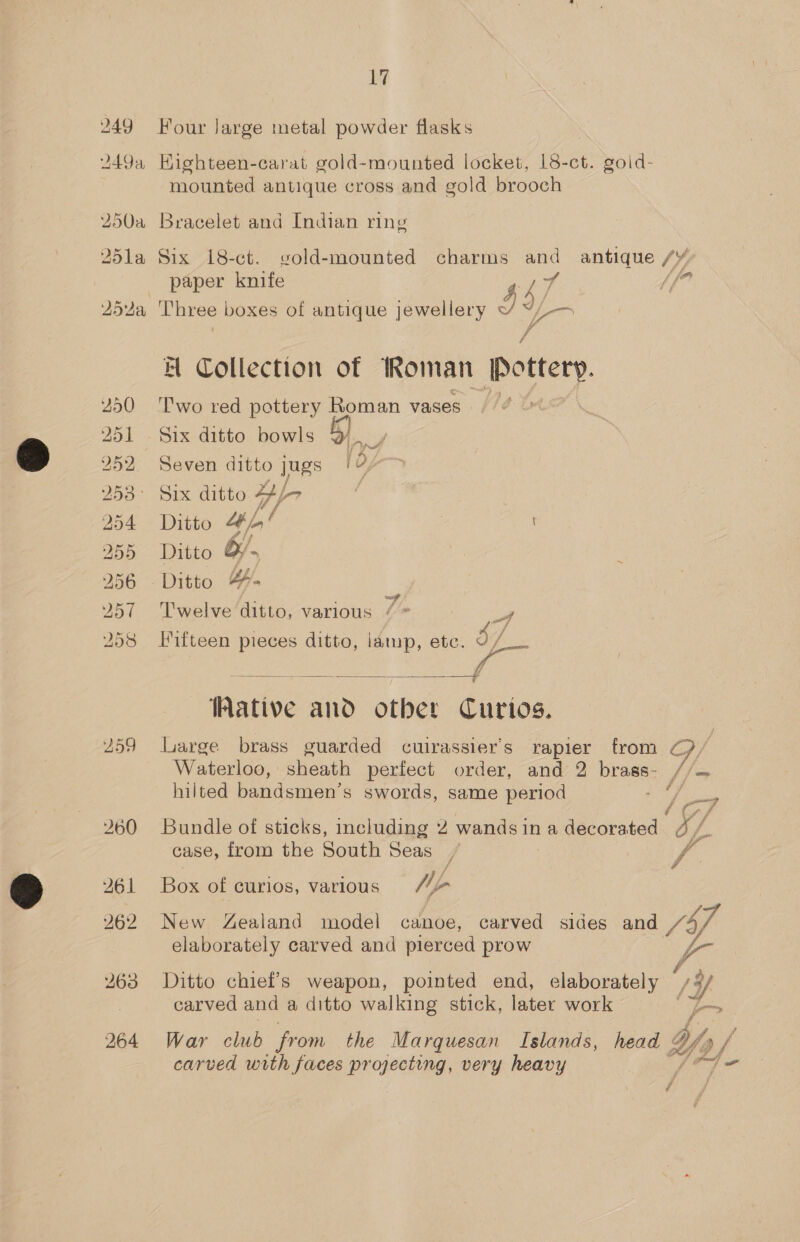 17
249 Four large metal powder flasks
249a Eighteen-carat gold-mounted locket, 18-ct. gold-
mounted antique cross and gold brooch
250a Bracelet and Indian ring
251a Six 18-ct. gold-mounted charms and antique
paper knife
252a Three boxes of antique jewellery
A Collection of Roman Pottery.
250 Two red pottery Roman vases
251 Six ditto bowls
252 Seven ditto jugs
253 Six ditto
254 Ditto
255 Ditto
256 Ditto
257 Twelve ditto, various
258 Fifteen pieces ditto, lamp, etc.
Native and other Curios.
259 Large brass guarded cuirassier's rapier from
Waterloo, sheath perfect order, and 2 brass-
hilted bandsmen's swords, same period -
260 Bundle of sticks, including 2 wands in a decorated
case, from the South Seas
261 Box of curios, various
262 New Zealand model canoe, carved sides and
elaborately carved and pierced prow
263 Ditto chief's weapon, pointed end, elaborately
carved and a ditto walking stick, later work
264 War club from the Marquesan Islands, head
carved with faces projecting, very heavy